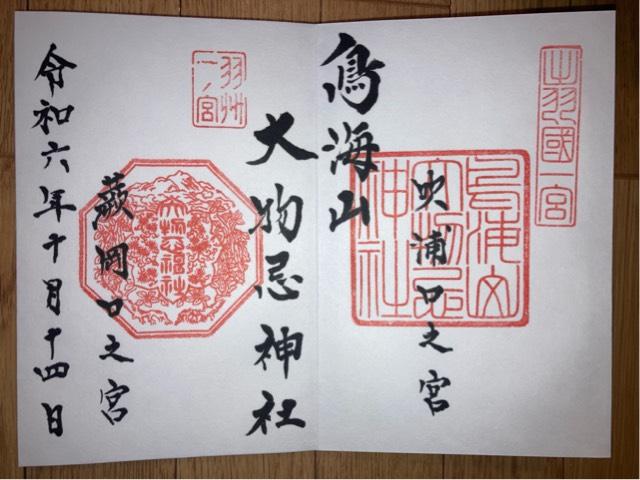 出羽國一宮
吹浦口之宮
鳥海山
鳥海山大物忌神社
大物忌神社
羽州一ノ宮
蕨岡口之宮
大物忌神社
令和六年十月十四日